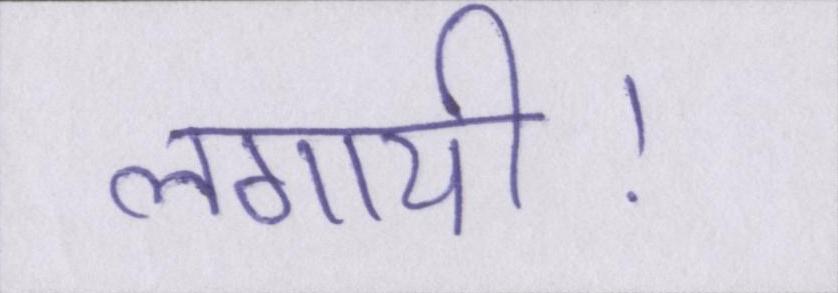 लगायी!